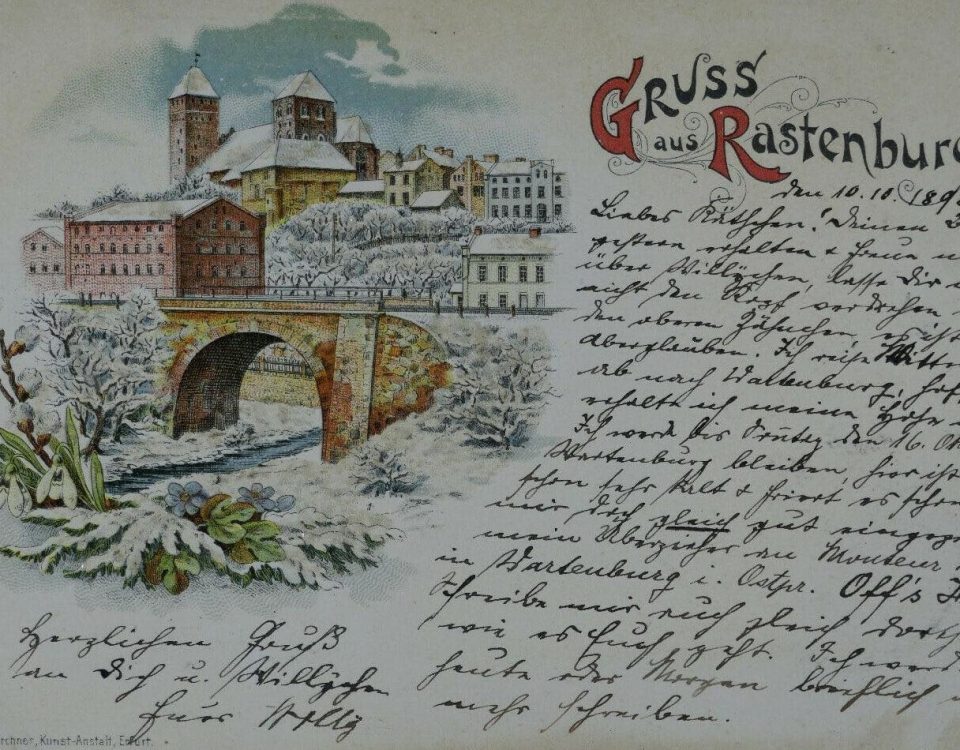 GRUSS
aus Rastenburg
den 10.10.189
Liebes Käthchen! Deinen
gestern erhalten & freue
über Willychen, lasse Dir
nicht den Kopf verdrehen
den oberen Zähnchen, ist
Aberglauben. Ich reise
ab nach Wartenburg,
erhalte ich meine
Ich werde bis den 16. Ok
Wartenburg bleiben, hier ist
schon sehr kalt & friert es schon
mir doch gleich gut
mein Überzieher an Monteur
in Wartenburg i. Ostpr. Off's
Schreibe mir auch gleich dorth
wie es Euch geht. Ich werd
heute oder Morgen brieflich
mehr schreiben.
Herzlichen Gruß
an Dich u. Willychen
Euer Willy
rchner, Kunst-Anstalt, Erfurt.